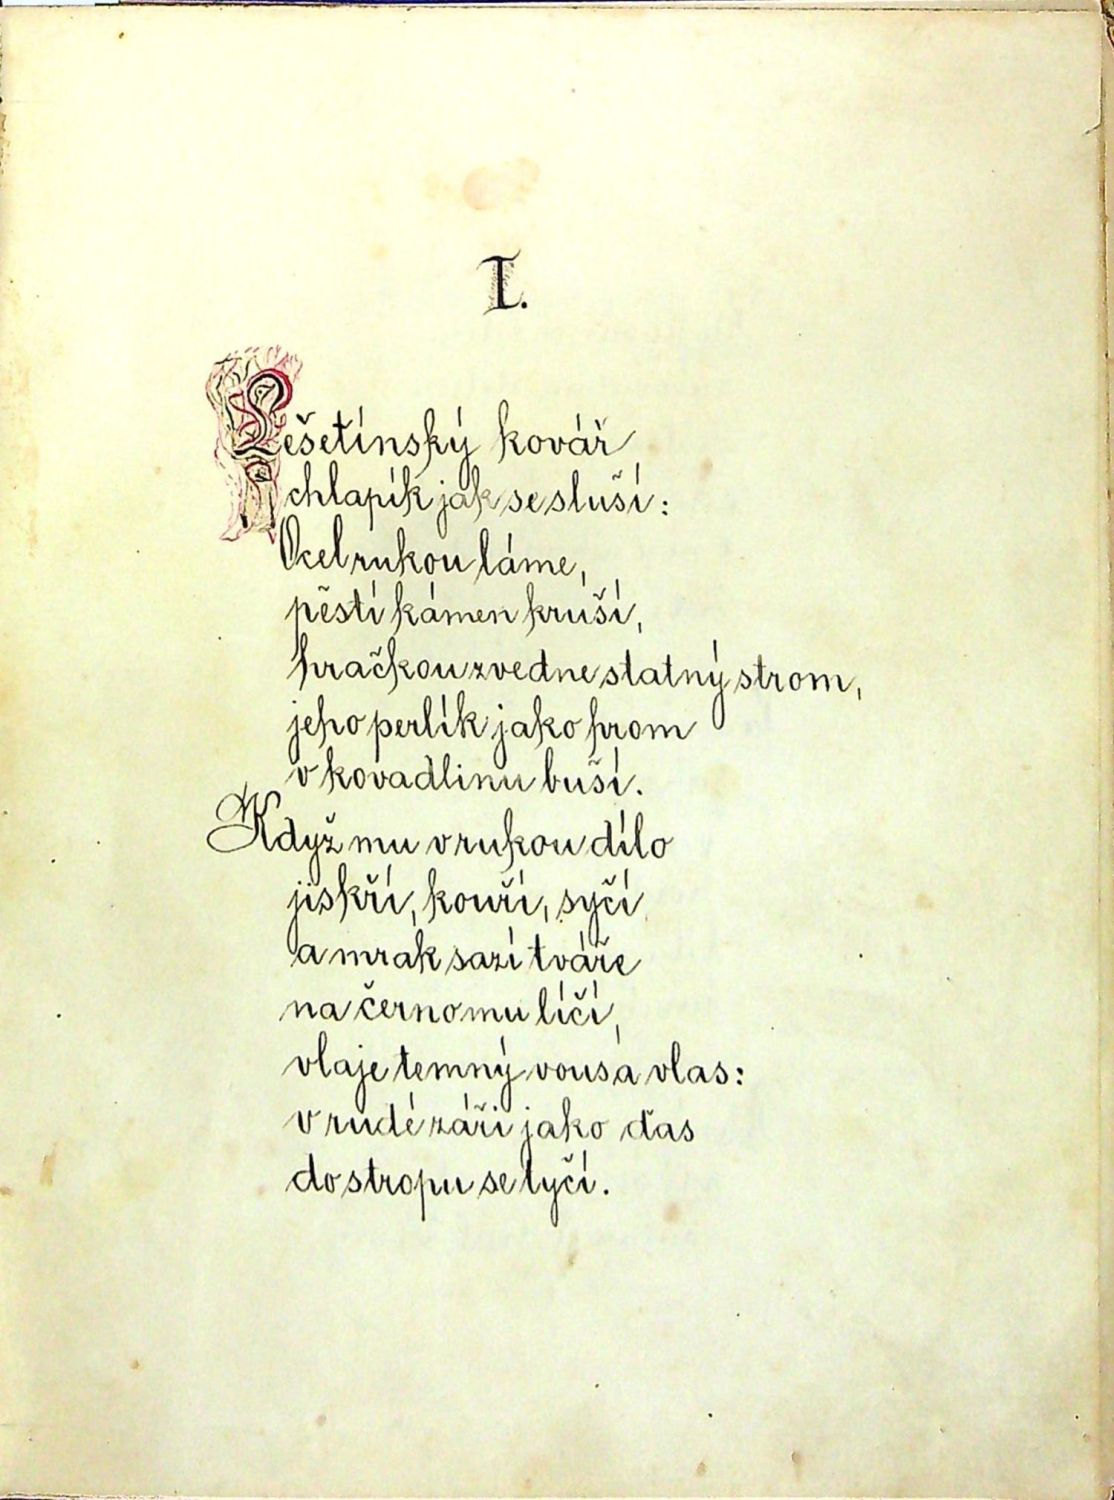 I.
Lešetínský kovář
chlapík jak se sluší:
Ocel rukou láme,
pěstí kámen kruší,
hračkou zvedne statný strom,
jeho perlík jako hrom
v kovadlinu buší.
Když mu v rukou dílo
jiskří, kouří, syčí
a mrak sazí tváře
na černo mu líčí,
vlaje temný vous a vlas:
v rudé záři jako ďas
do stropu se tyčí.